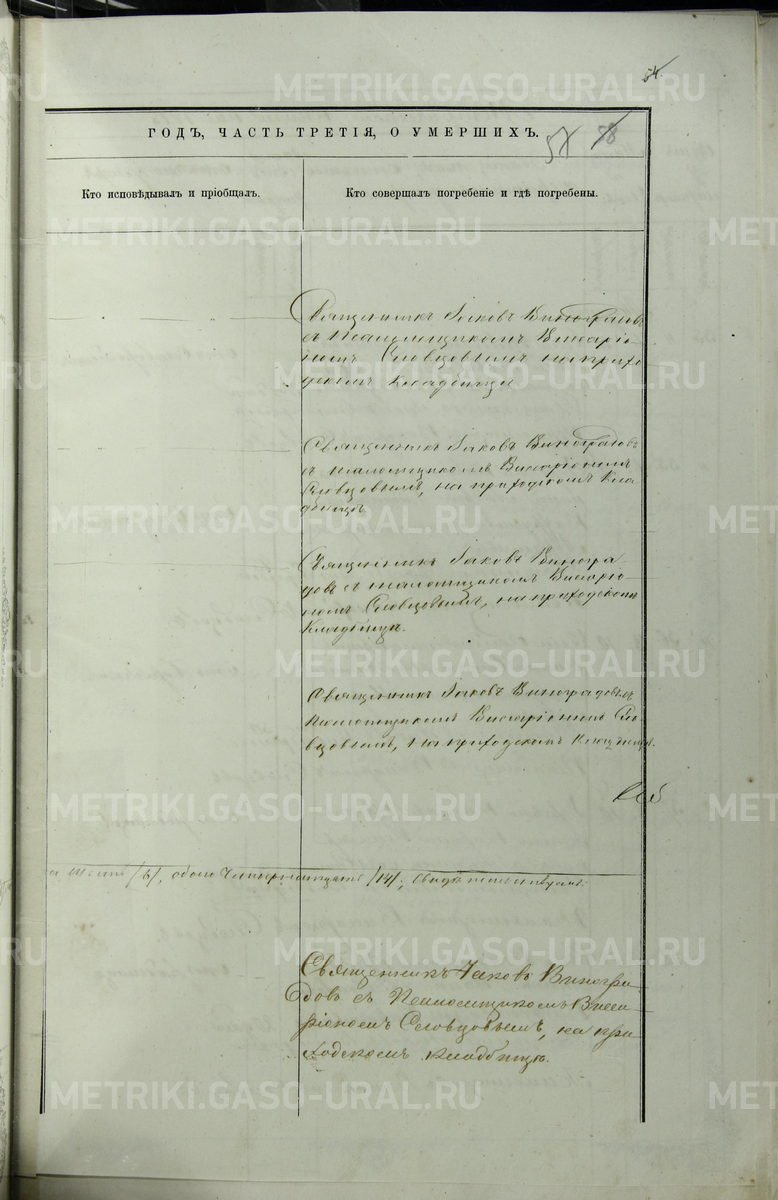 54
ГОДЪ, ЧАСТЬ ТРЕТІЯ, О УМЕРШИХЪ.
57 58
Кто исповѣдывалъ и пріобщалъ.
Кто совершалъ погребеніе и гдѣ погребены.
Священникъ Іаковъ Виноградовъ
съ Псаломщикомъ Виссаріо-
номъ Словцовымъ на прихо
дскомъ кладбищѣ
Священникъ Іаковъ Виноградовъ
съ псаломщикомъ Виссаріономъ
Словцовымъ, на приходскомъ кла
дбищѣ
Священникъ Іаковъ Виногра
довъ съ псаломщикомъ Виссаріо
номъ Словцовымъ, на приходскомъ
Кладбищѣ.
Священникъ Іаковъ Виноградовъ съ
Псаломщикомъ Виссаріономъ Сло-
вцовымъ, на приходскомъ кладбищѣ.
/6/, обоего четырнадцать /14/;
Священникъ Іаковъ Виногра
довъ съ Псаломщикомъ Висса
ріономъ Словцовымъ, на при
ходскомъ кладбищѣ.
METRIKI.GASO-URAL.RU